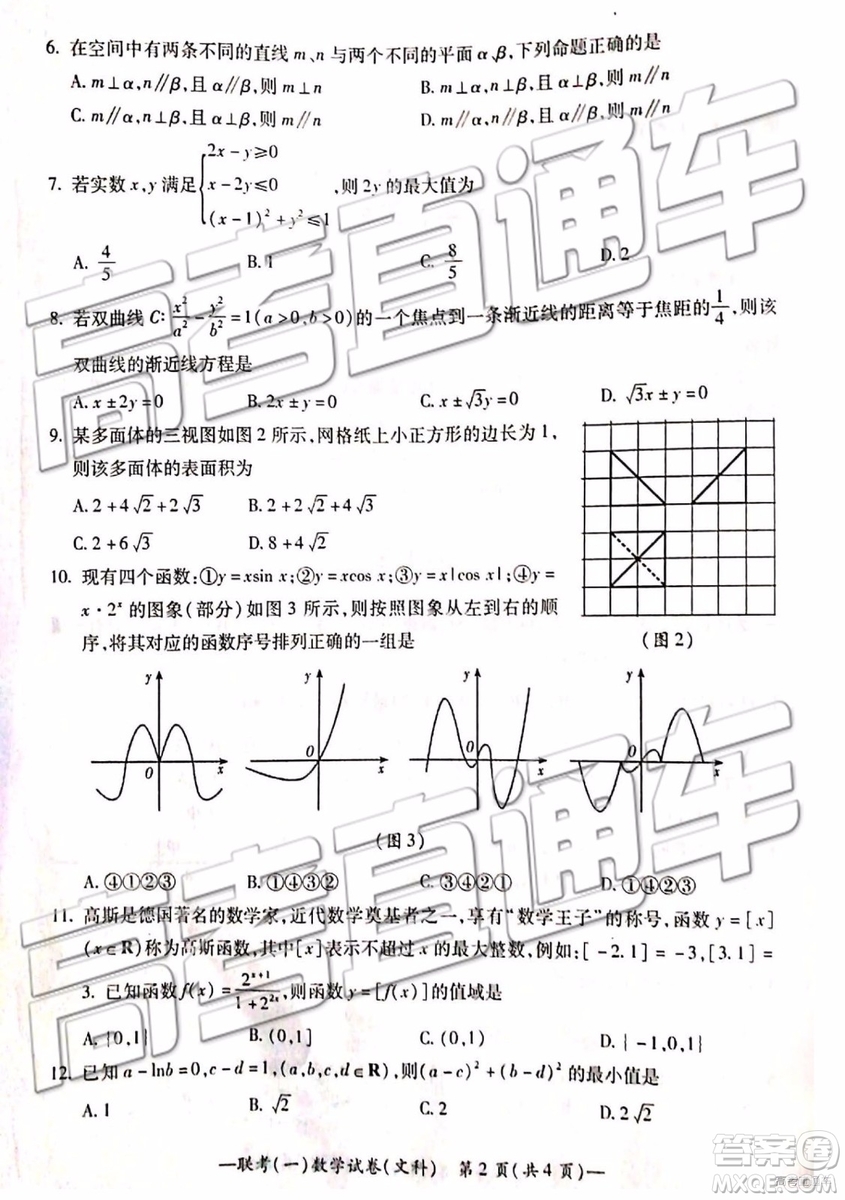 6. 在空间中有两条不同的直线 m、n 与两个不同的平面 α、β,下列命题正确的是
A. m⊥α,n∥β,且 α∥β,则 m⊥n B. m⊥α,n⊥β,且 α⊥β,则 m∥n
C. m∥α,n⊥β,且 α⊥β,则 m∥n D. m∥α,n∥β,且 α∥β,则 m∥n
2x-y≥0
7. 若实数 x,y 满足{x-2y≤0 ,则 2y 的最大值为
(x-1)²+y²≤1
A. 4/5 B. 1 C. 8/5 D. 2
8. 若双曲线 C: x²/a² - y²/b² =1(a>0,b>0)的一个焦点到一条渐近线的距离等于焦距的1/4,则该
双曲线的渐近线方程是
A. x±2y=0 B. 2x±y=0 C. x±√3y=0 D. √3x±y=0
9. 某多面体的三视图如图 2 所示,网格纸上小正方形的边长为 1,
则该多面体的表面积为
A. 2+4√2+2√3 B. 2+2√2+4√3
C. 2+6√3 D. 8+4√2
10. 现有四个函数:①y=xsin x;②y=xcos x;③y=x|cos x|;④y=
x·2ˣ 的图象(部分)如图 3 所示,则按照图象从左到右的顺
序,将其对应的函数序号排列正确的一组是
(图 2)
y y y y
O x O x O x O x
(图 3)
A. ④①②③ B. ①④③② C. ③④②① D. ①④②③
11. 高斯是德国著名的数学家,近代数学奠基者之一,享有“数学王子”的称号,函数 y=[x]
(x∈R)称为高斯函数,其中[x]表示不超过 x 的最大整数,例如:[-2.1]=-3,[3.1]=
3. 已知函数 f(x)=2ˣ⁺¹/(1+2²ˣ),则函数 y=[f(x)]的值域是
A. {0,1} B. (0,1] C. (0,1) D. {-1,0,1}
12. 已知 a-lnb=0,c-d=1,(a,b,c,d∈R),则(a-c)²+(b-d)² 的最小值是
A. 1 B. √2 C. 2 D. 2√2
—联考(一)数学试卷(文科) 第 2 页(共 4 页)—
高考直通车
高考直通车
答案圈
MXQE.COM